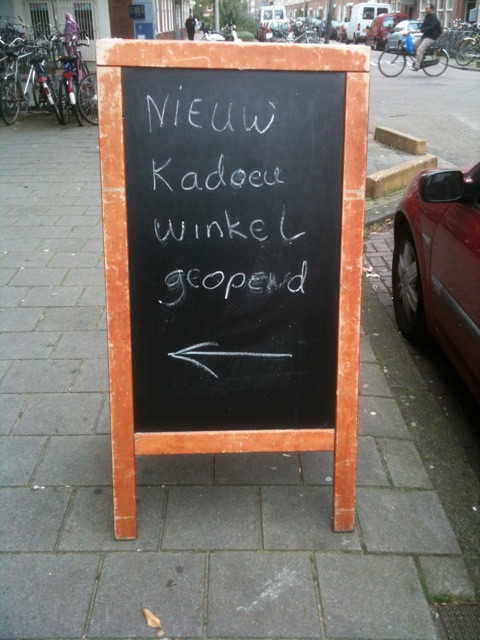 NiEUW
Kadoeu
winkeL
geopend